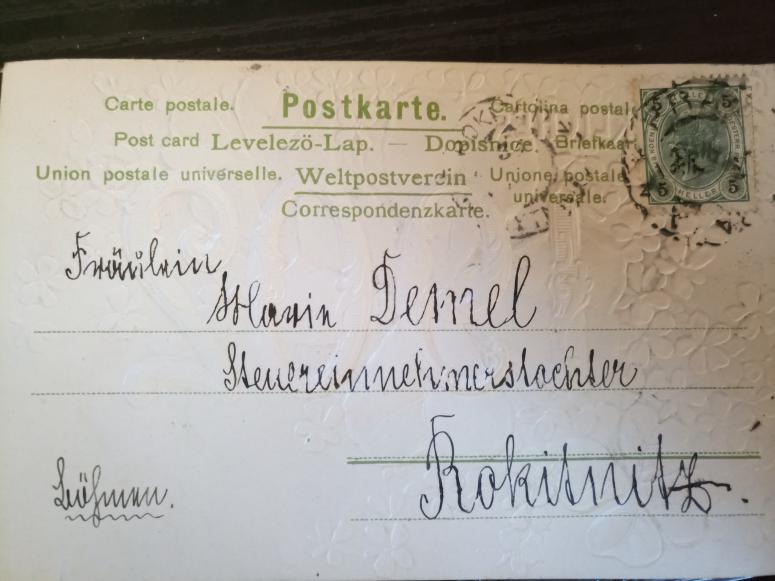 Carte postale. Postkarte. Cartolina postal
Post card Levelezö-Lap. — Dopisnice. Briefkaart
Union postale universelle. Weltpostverein Unione postale
universale.
Correspondenzkarte.
5 5
5 HELLER 5
Fräulein
Marie Demel
Steuereinnehmerstochter
Rokitnitz.
Böhmen.